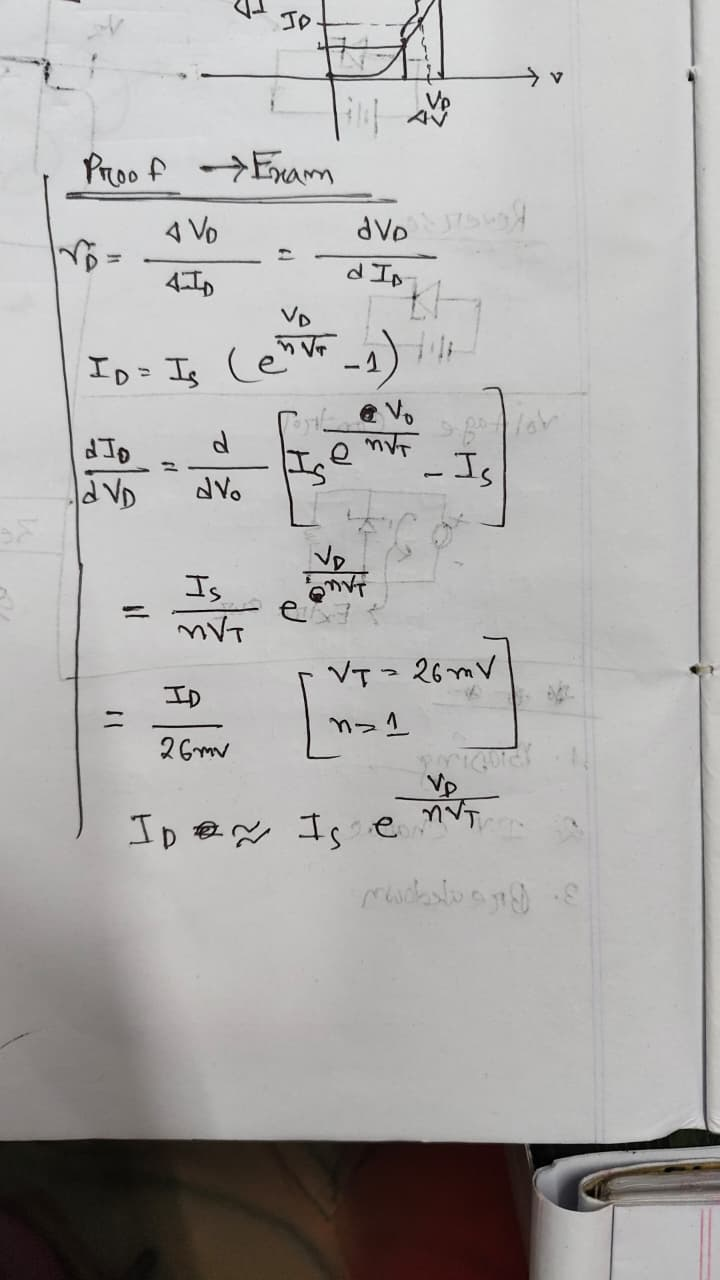 ΔI ID
V
VD
ΔV
Proof → Exam
rD = ΔVD / ΔID = dVD / dID
ID = IS (e^(VD / nVT) - 1)
dID / dVD = d / dVD [IS e^(VD / nVT) - IS]
= IS / nVT e^(VD / nVT)
= ID / 26mV [VT = 26mV
n = 1]
ID ≈ IS e^(VD / nVT)